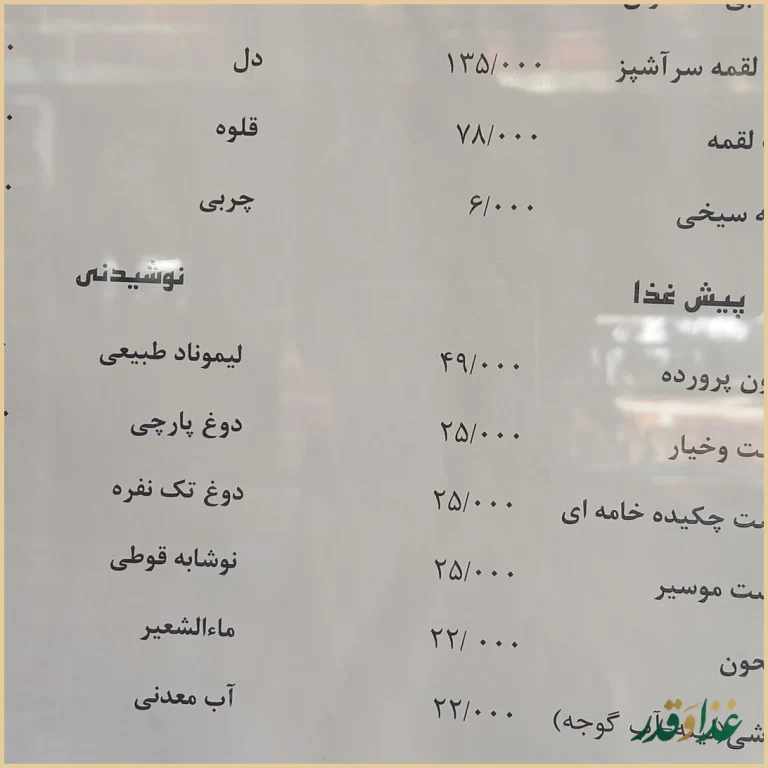 لقمه سرآشپز ۱۳۵/۰۰۰
لقمه ۷۸/۰۰۰
سیخی ۶/۰۰۰
پیش غذا
پرورده ۴۹/۰۰۰
وخیار ۲۵/۰۰۰
چکیده خامه ای ۲۵/۰۰۰
موسیر ۲۵/۰۰۰
۲۲/ ۰۰۰
گوجه) ۲۲/۰۰۰
دل
قلوه
چربی
نوشیدنی
لیموناد طبیعی
دوغ پارچی
دوغ تک نفره
نوشابه قوطی
ماءالشعیر
آب معدنی
غذا و قدر